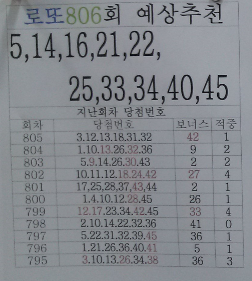 로또806회 예상추천
5,14,16,21,22,
25,33,34,40,45
지난회차 당첨번호
회차 당첨번호 보너스 적중
805 3.12.13.18.31.32 42 1
804 1.10.13.26.32.36 9 2
803 5.9.14.26.30.43 2 2
802 10.11.12.18.24.42 27 4
801 17,25,28,37,43,44 2 1
800 1.4.10.12.28.45 26 1
799 12.17.23.34.42.45 33 4
798 2.10.14.22.32.36 41 0
797 5.22.31.32.39.45 36 1
796 1.21.26.36.40.41 5 1
795 3.10.13.26.34.38 36 3